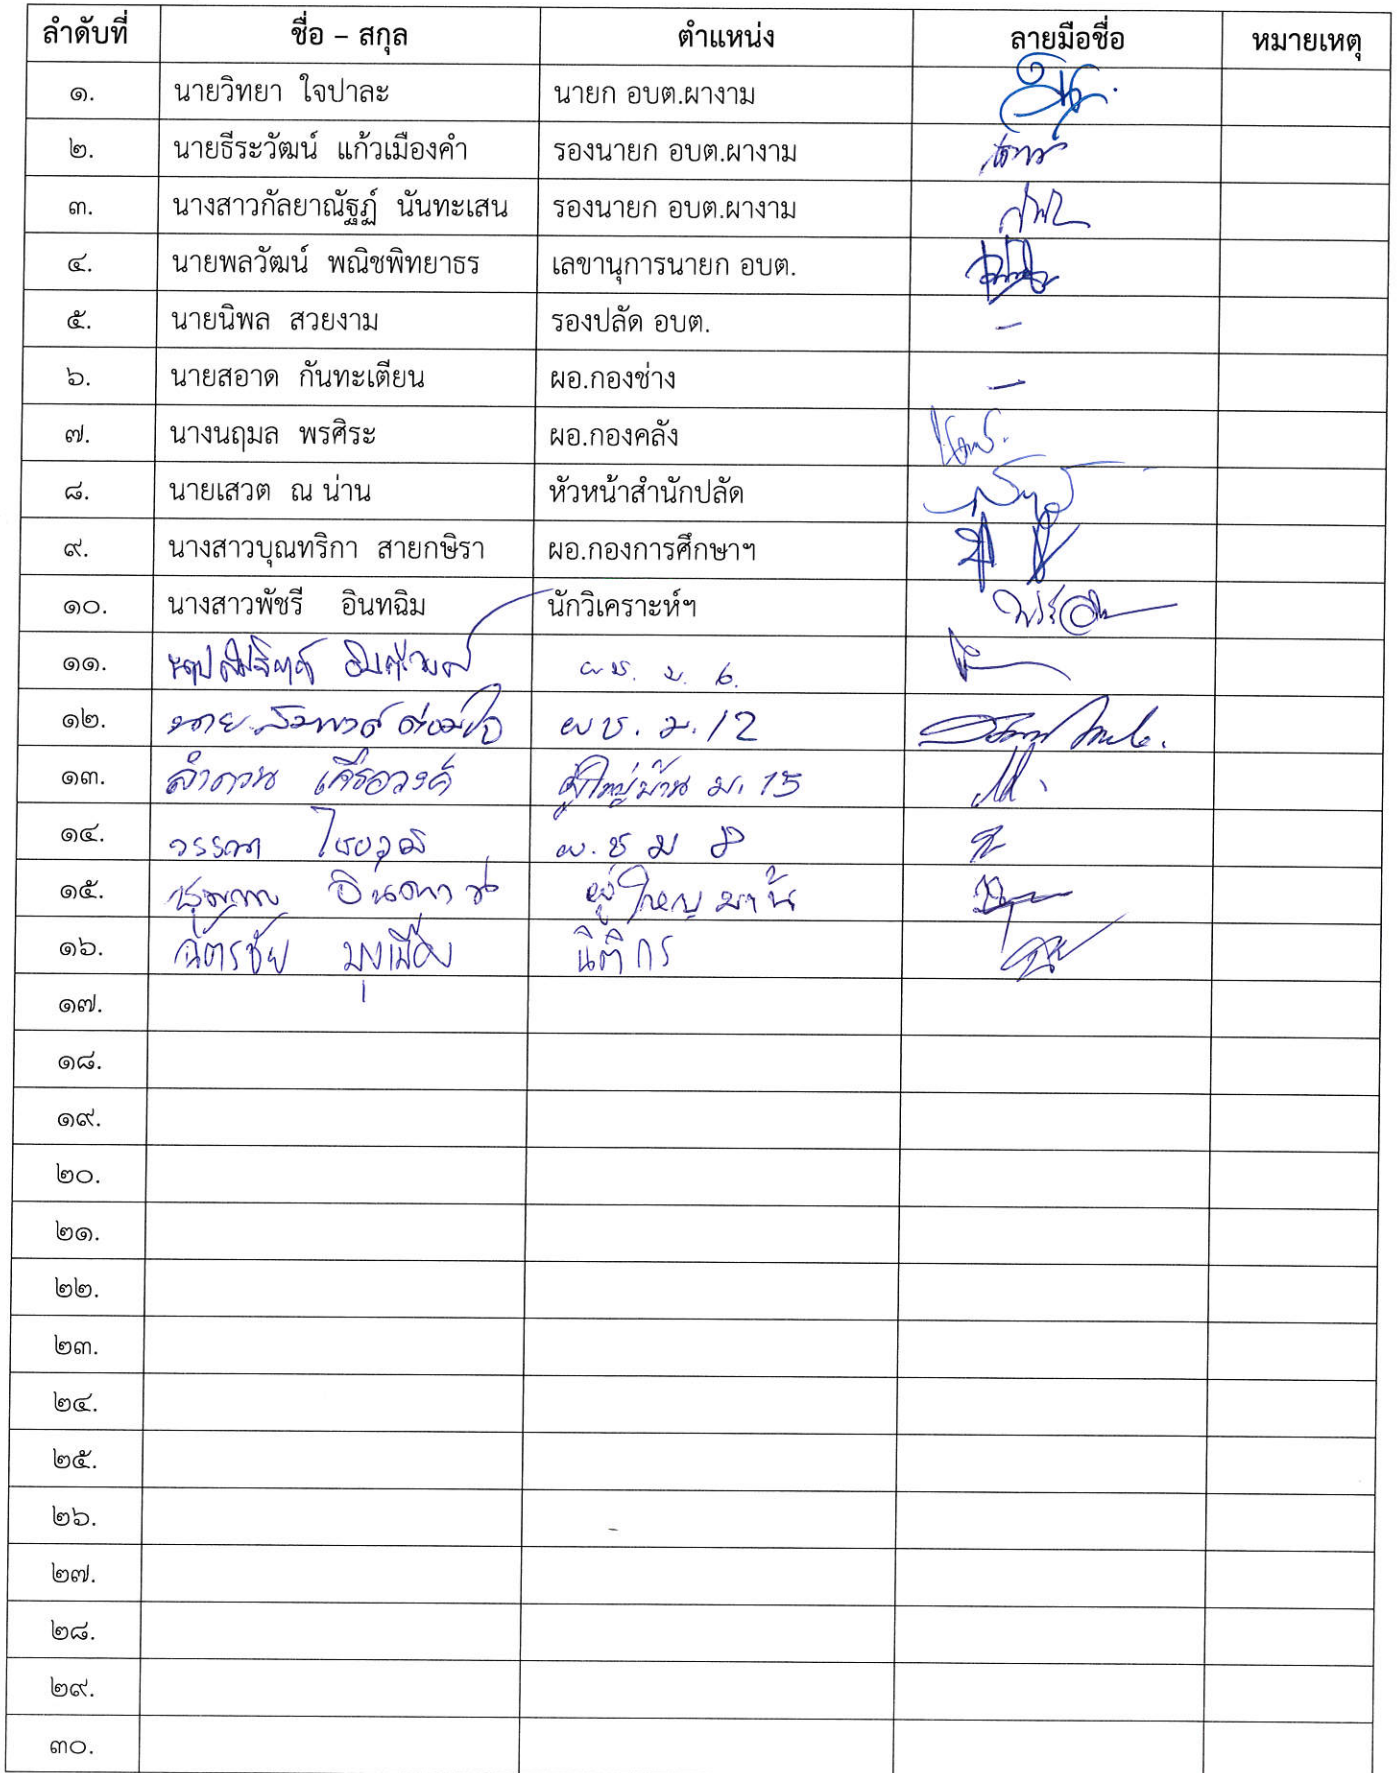 ลำดับที่ ชื่อ – สกุล ตำแหน่ง ลายมือชื่อ หมายเหตุ
๑. นายวิทยา ใจปาละ นายก อบต.ผางาม
๒. นายธีระวัฒน์ แก้วเมืองคำ รองนายก อบต.ผางาม
๓. นางสาวกัลยาณัฐฏ์ นันทะเสน รองนายก อบต.ผางาม
๔. นายพลวัฒน์ พณิชพิทยาธร เลขานุการนายก อบต.
๕. นายนิพล สวยงาม รองปลัด อบต. –
๖. นายสอาด กันทะเตียน ผอ.กองช่าง –
๗. นางนฤมล พรศิระ ผอ.กองคลัง
๘. นายเสวต ณ น่าน หัวหน้าสำนักปลัด
๙. นางสาวบุณทริกา สายกษิรา ผอ.กองการศึกษาฯ
๑๐. นางสาวพัชรี อินทฉิม นักวิเคราะห์ฯ
๑๑. ผช. ม. 6.
๑๒. นาย ผช. ม. 12
๑๓. ลำดวน เครือวงค์ ผู้ใหญ่บ้าน ม. 15
๑๔. วรรณา
๑๕. ผู้ใหญ่บ้าน
๑๖. ฉัตรชัย มุงเมือง นิติกร
๑๗.
๑๘.
๑๙.
๒๐.
๒๑.
๒๒.
๒๓.
๒๔.
๒๕.
๒๖.
๒๗.
๒๘.
๒๙.
๓๐.